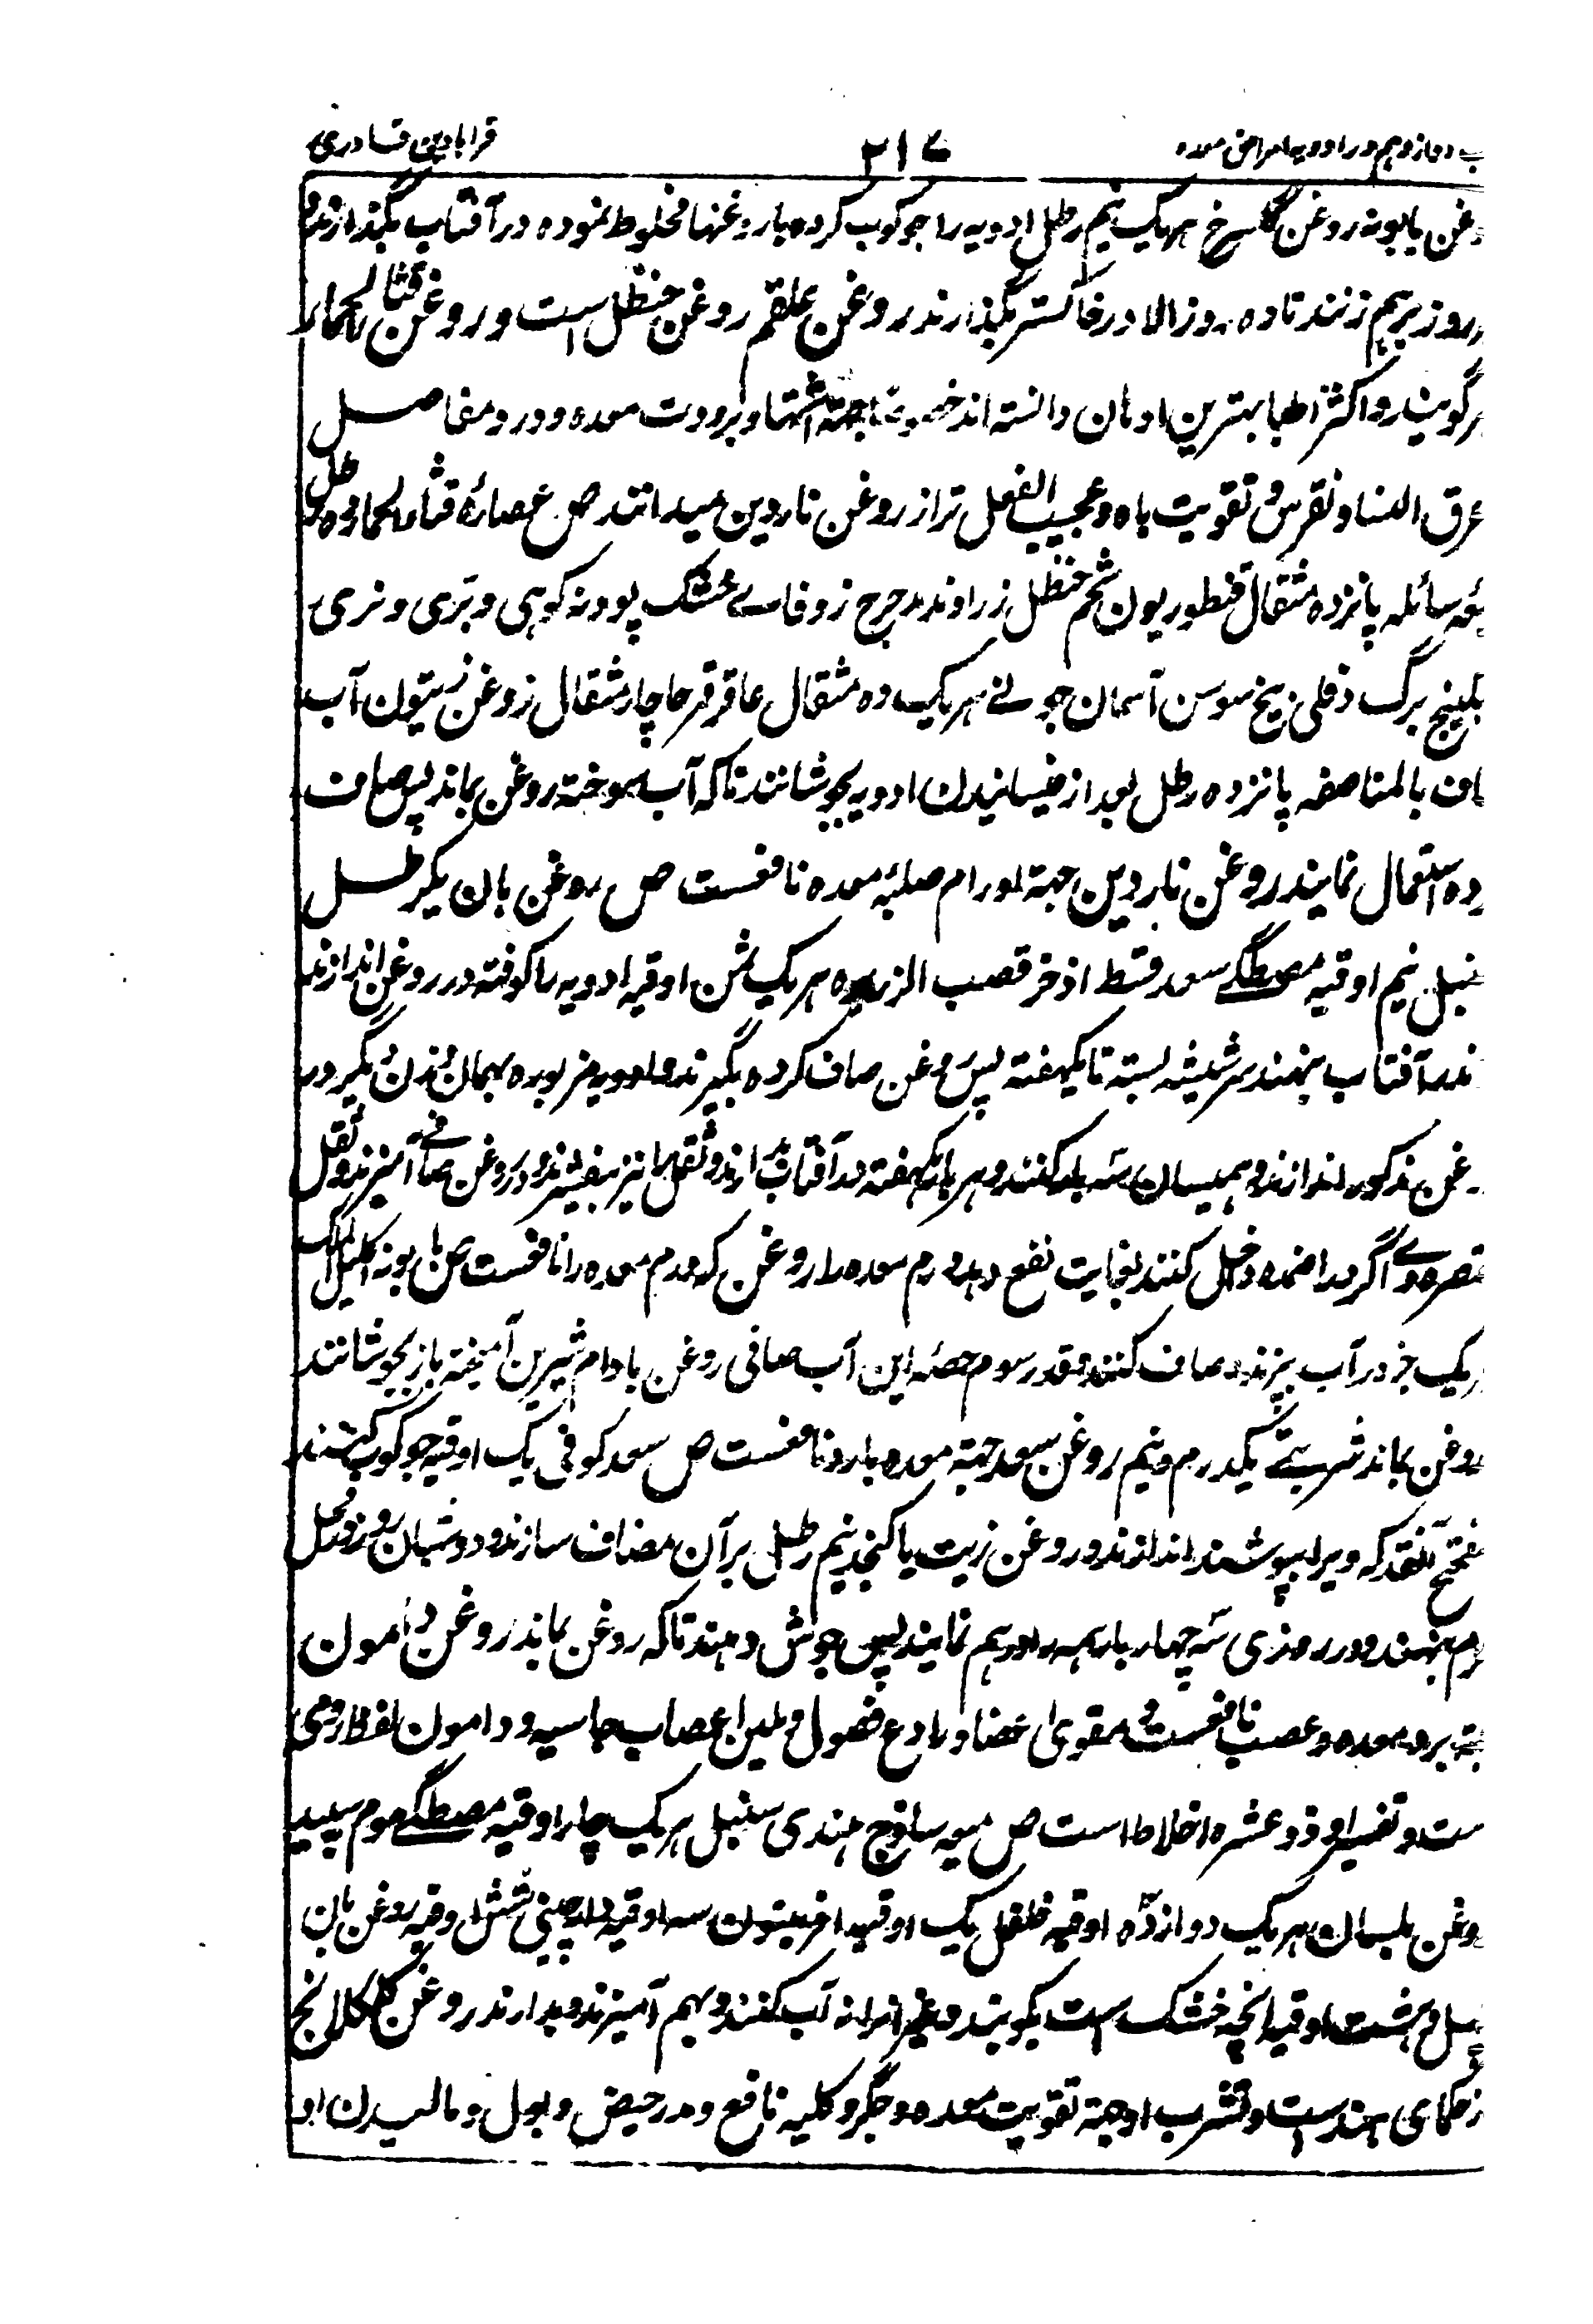 ب دوازدهم در ادویه امراض معده ۲۱۷ قرابادین قادری
غن بابونه روغن گل سرخ هریک نیم رطل ادویه را جوکوب کرده بار وغنها مخلوط نموده در آفتاب بگذارند و
روز برهم زنند تا ده روز الا در خاکستر بگذارند روغن علقم روغن حنظل است و روغن قثاء الحمار
گویند و اکثر اطبا بهترین ادهان دانسته اند خصوصا جهة اشتها و برودت معده و درد مفاصل
عرق النسا و نقرس و تقویت باه و عجیب الفعل تر از روغن ناردین میدانند ص عصارهٔ قثاء الحمار ده رطل
سائله پانزده مثقال قنطوریون شحم حنظل زراوند مدحرج زوفاے خشک پودنه کوهی و بری و نهری
برگ دفلی بیخ سوسن آسمان جونے هریک ده مثقال عاقرقرحا چار مثقال روغن زیتون آب
اف بالمناصفه پانزده رطل بعد از خیسانیدن ادویه بجوشانند تا که آب سوخته روغن بماند پس صاف
ده استعمال نمایند روغن ناردین جهة اورام صلبهٔ معده نافعست ص روغن بان یکرطل
سنبل نیم اوقیه مصطگے سعد قسط اذخر قصب الزریره هریک ثمن اوقیه ادویه را کوفته در روغن اندازند
ند در آفتاب بنهند سر شیشه بسته تا یکهفته پس روغن صاف کرده بگیرند و ادویه مزبوره بهمان وزن بگیر در
غن مذکور اندازند و همیسان سه بار کنند و هر بار یکهفته در آفتاب دارند و ثقل را نیز بیفشرند و در روغن صافے آمیزند و ثقل
اگر در اضمده داخل کنند بغایت نفع دهد ورم معده را روغن که ورم معده را نافعست ص بابونه اکلیل الملک
ریک جز در آب بپزند و صاف کنند و بقدر سوم حصه این آب صافی روغن بادام شیرین آمیخته باز بجوشانند
روغن بماند شربتے یکدرم و نیم روغن سعد جهة معده بارد نافعست ص سعد کوفی یک اوقیه جوکوب کنند
آنقدر که ویرا بپوشد اندازند و روغن زیت یا کنجد نیم رطل بر آن مضاف سازند و دو شبان روز در محل
رم بنهند و در روزی سه چهار بار بهم برهم نمایند پس جوش دهند تا که روغن بماند روغن دامون
بهة برد معده و عصب نافعست و مقوی اعضا و رادع فضول و ملین اعصاب جاسیه و دامون لفظ رومی
ست و تفسیر او ذو عشره اخلاط است ص میعه ساذج هندی سنبل هریک چار اوقیه مصطگے موم سپید
وغن بلسان هریک دوازده اوقیه فلفل یک اوقیه افربیون سه اوقیه دارچینی شش اوقیه روغن بان
و هشت اوقیه انچه خشک ست بکوبند و غیر آنرا آب کنند و بهم آمیزند و بدارند روغن کلکلانج
زحکمای هندست و شرب او جهة تقویت معده و جگر و کلیه نافع و مدر حیض و بول و مالیدن او